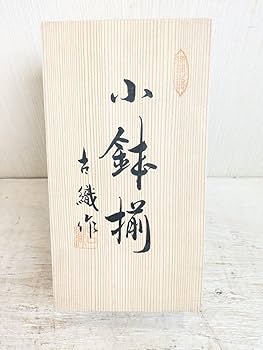 小鉢揃
古織作